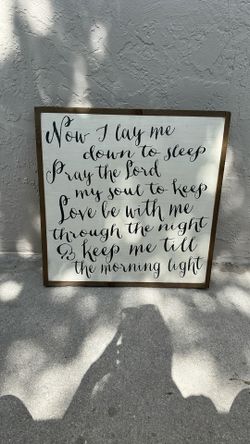 Now I lay me
down to sleep
Pray the Lord
my soul to keep
Love be with me
through the night
& keep me till
the morning light